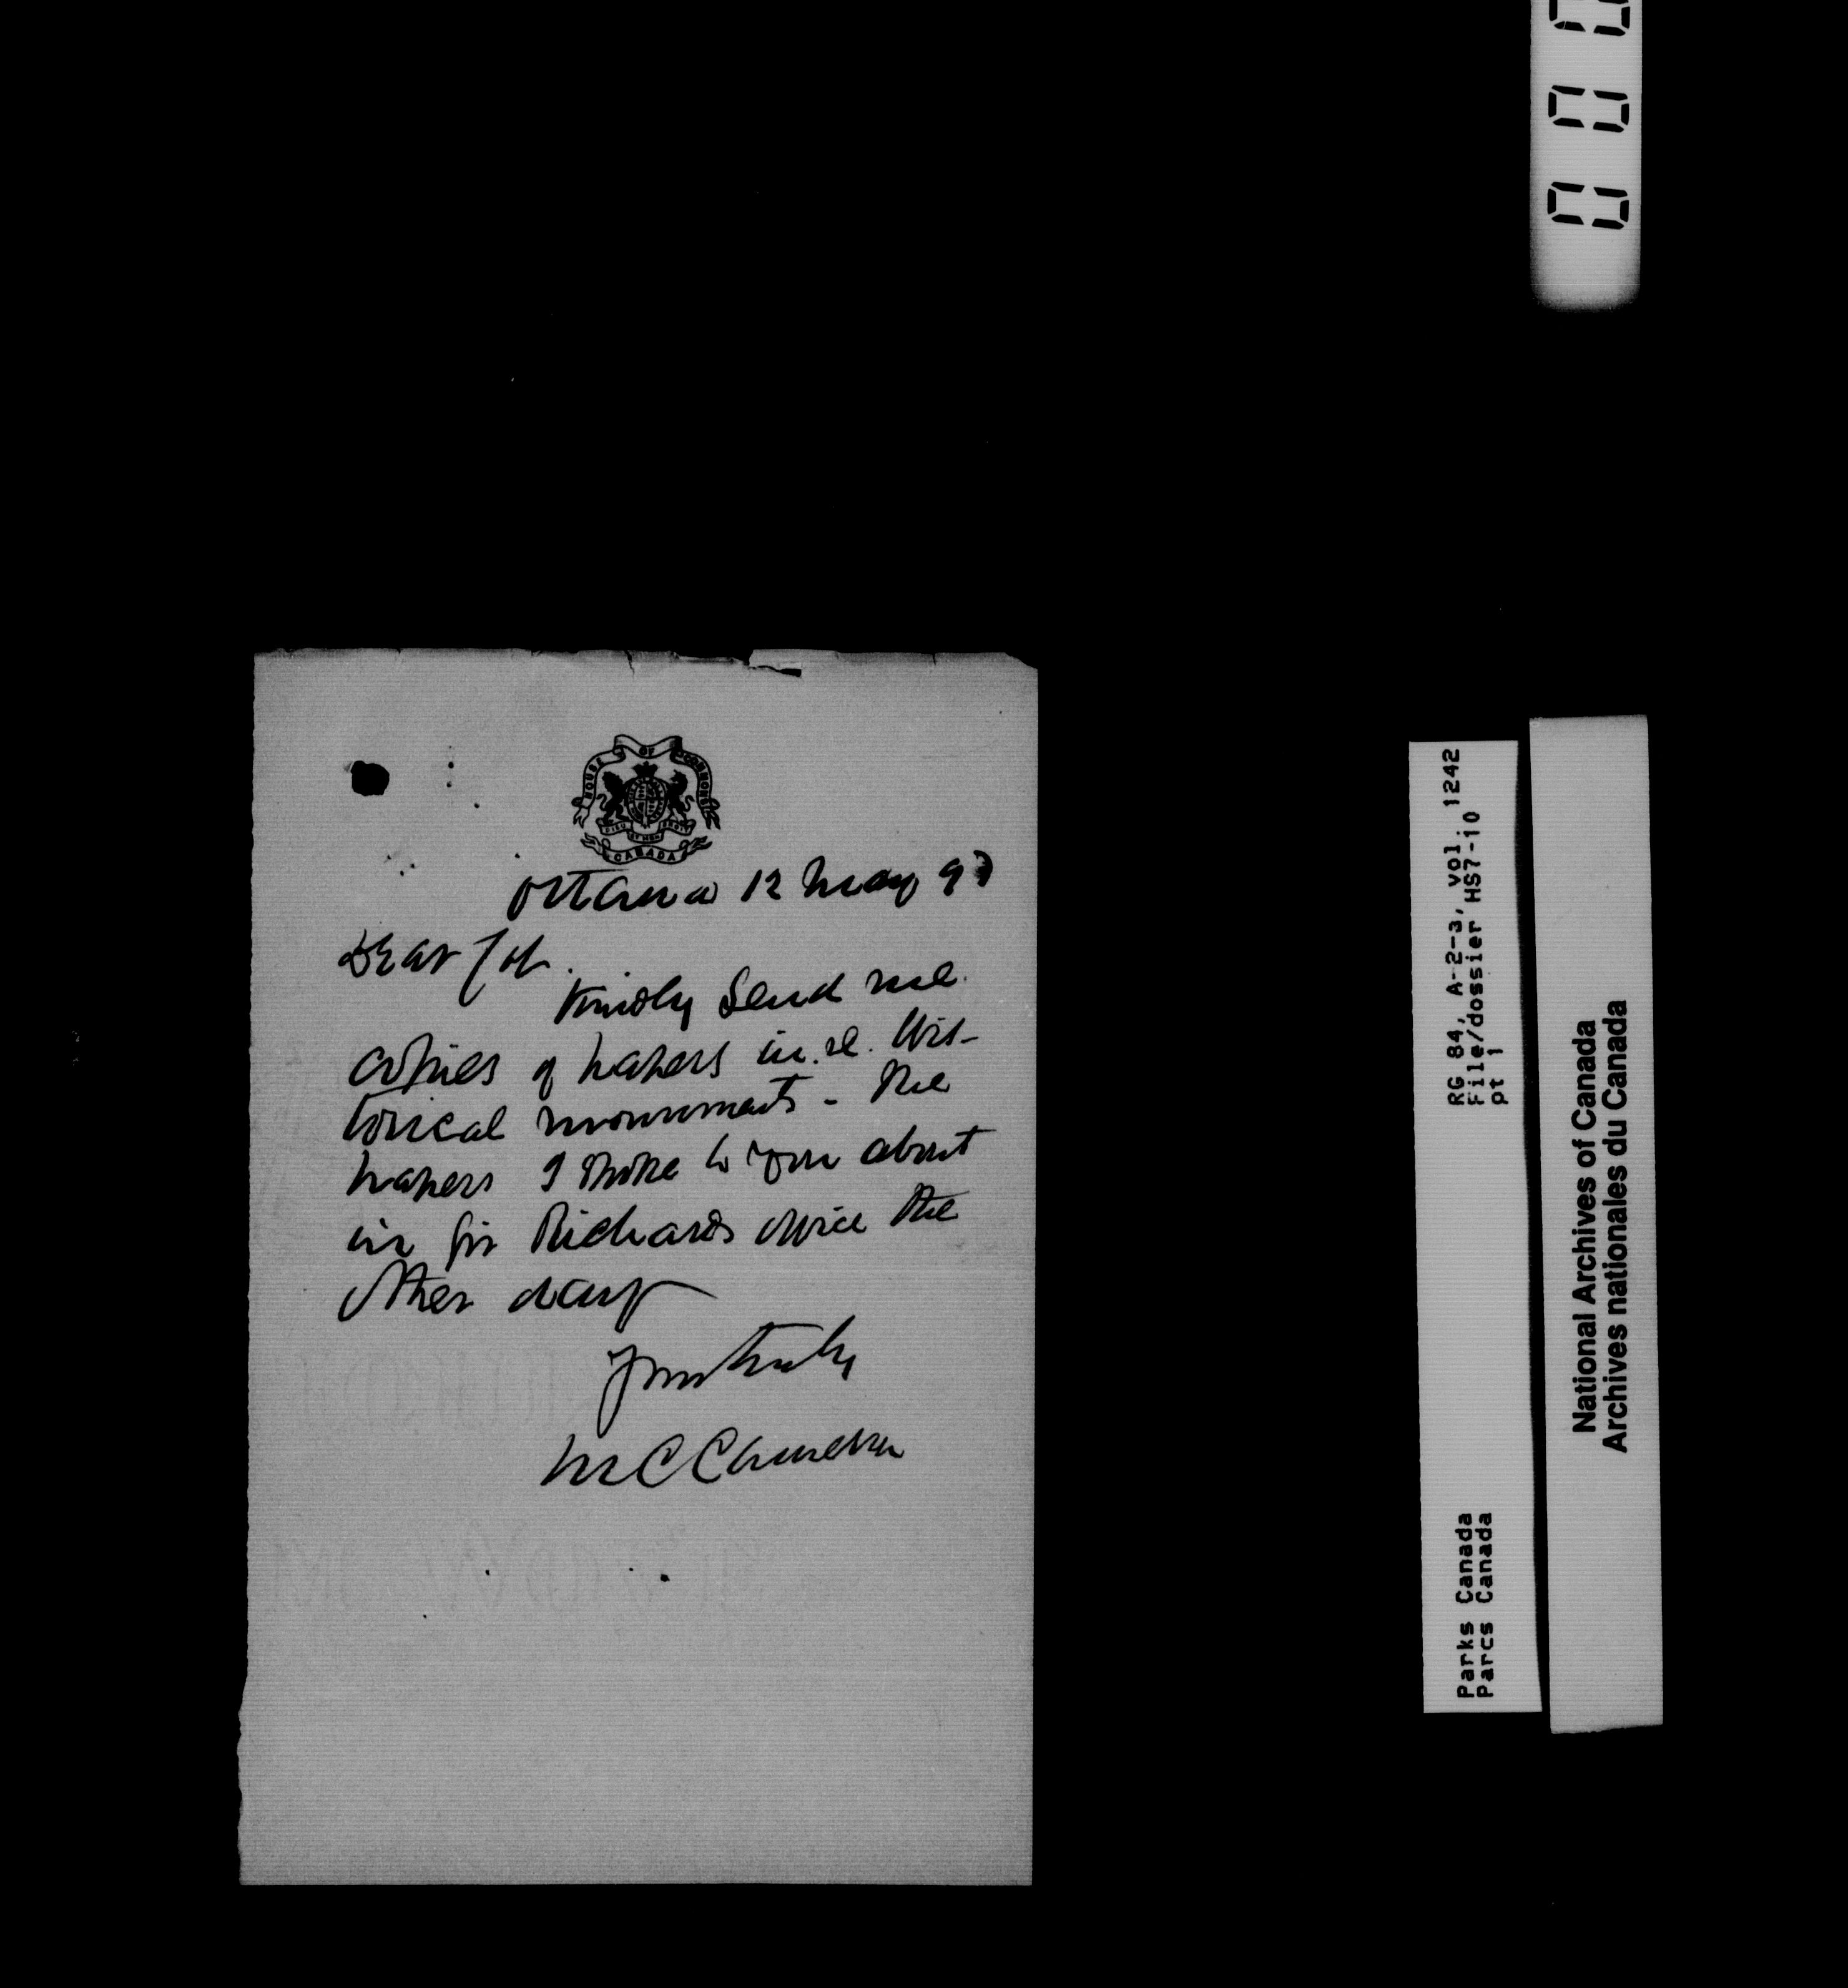 HOUSE OF COMMONS
DIEU ET MON DROIT
CANADA
Ottawa 12 May 97
Dear
Kindly send me
copies of papers in re. His-
torical monuments - The
papers I spoke to you about
in Sir Richards office the
other day
Yours truly
M C Cameron
RG 84, A-2-3, vol. 1242
File/dossier HS7-10
pt 1
Parks Canada
Parcs Canada
National Archives of Canada
Archives nationales du Canada